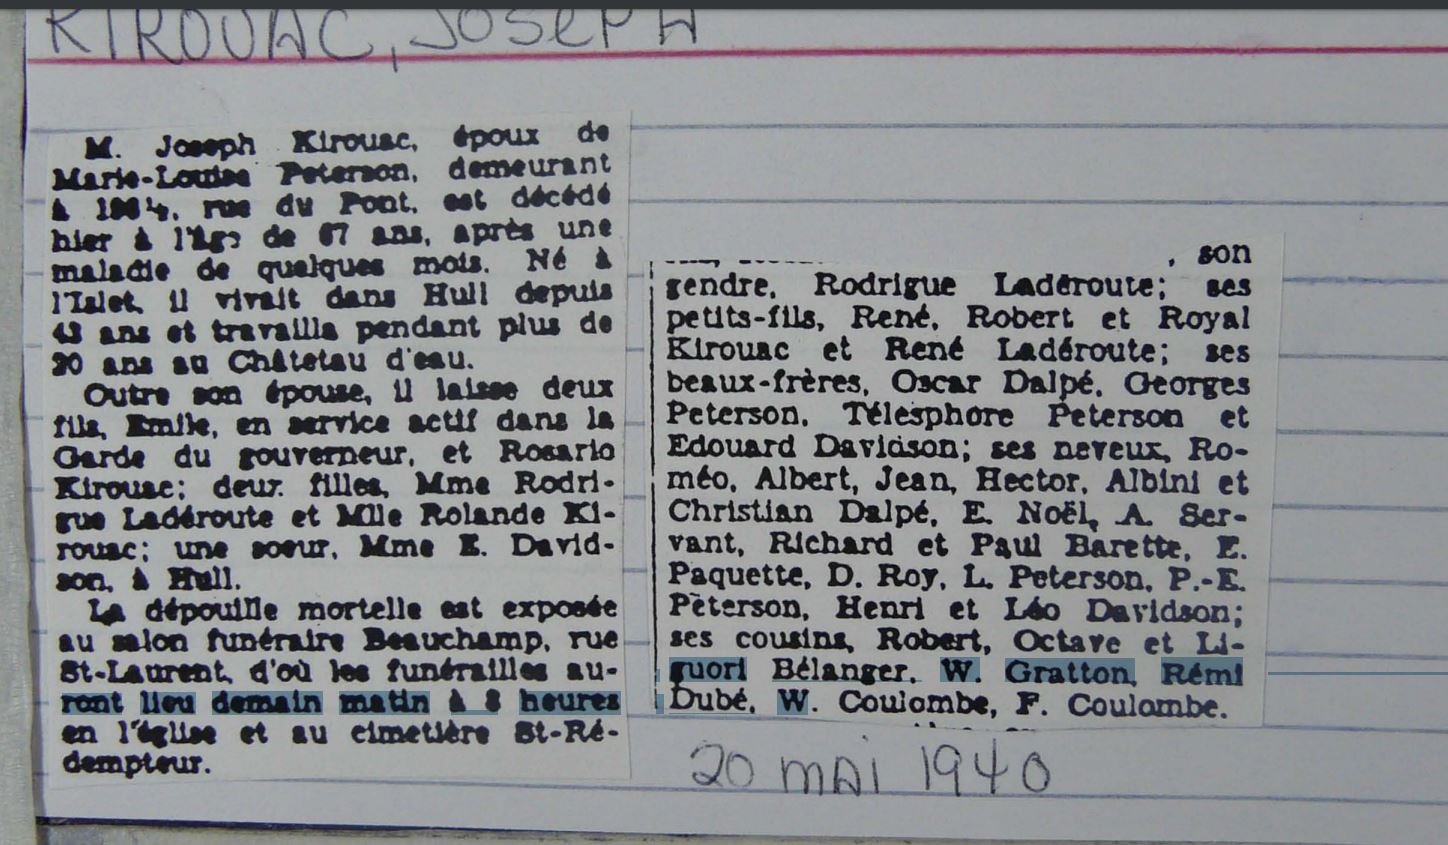 KIROUAC, JOSEPH
M. Joseph Kirouac, époux de
Marie-Louise Peterson, demeurant
à rue du Pont, est décédé
hier à l'âge de 67 ans, après une
maladie de quelques mois. Né à
l'Islet, il vivait dans Hull depuis
43 ans et travailla pendant plus de
20 ans au Châtetau d'eau.
Outre son épouse, il laisse deux
fils, Emile, en service actif dans la
Garde du gouverneur, et Rosario
Kirouac; deux filles, Mme Rodri-
gue Ladéroute et Mlle Rolande Ki-
rouac; une soeur, Mme E. David-
son, à Hull.
La dépouille mortelle est exposée
au salon funéraire Beauchamp, rue
St-Laurent, d'où les funérailles au-
ront lieu demain matin à 8 heures
en l'église et au cimetière St-Ré-
dempteur.
, son
gendre, Rodrigue Ladéroute; ses
petits-fils, René, Robert et Royal
Kirouac et René Ladéroute; ses
beaux-frères, Oscar Dalpé, Georges
Peterson, Télesphore Peterson et
Edouard Davidson; ses neveux, Ro-
méo, Albert, Jean, Hector, Albini et
Christian Dalpé, E. Noël, A. Ser-
vant, Richard et Paul Barette, E.
Paquette, D. Roy, L. Peterson, P.-E.
Peterson, Henri et Léo Davidson;
ses cousins, Robert, Octave et Li-
guori Bélanger, W. Gratton, Rémi
Dubé, W. Coulombe, F. Coulombe.
20 MAI 1940